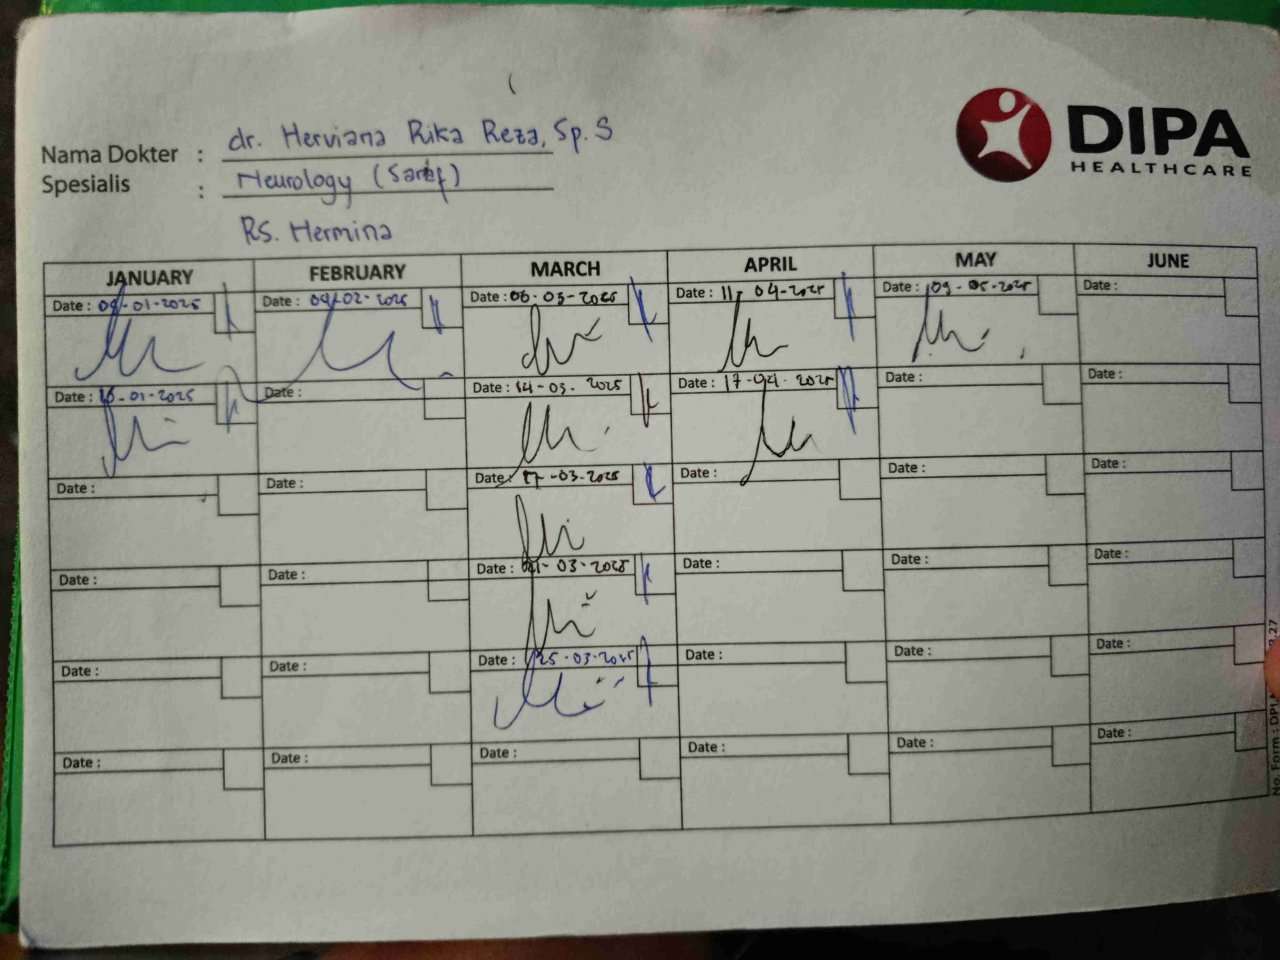 DIPA
HEALTHCARE
Nama Dokter : dr. Herviana Rika Reza, Sp. S
Spesialis : Neurology (Saraf)
RS. Hermina
JANUARY FEBRUARY MARCH APRIL MAY JUNE
Date : 09-01-2025 Date : 04-02-2025 Date : 06-03-2025 Date : 11-04-2025 Date : 09-05-2025 Date :
Date : 16-01-2025 Date : Date : 14-03-2025 Date : 17-04-2025 Date : Date :
Date : Date : Date : 17-03-2025 Date : Date : Date :
Date : Date : Date : 21-03-2025 Date : Date : Date :
Date : Date : Date : 25-03-2025 Date : Date : Date :
Date : Date : Date : Date : Date : Date :
No. Form : DPI